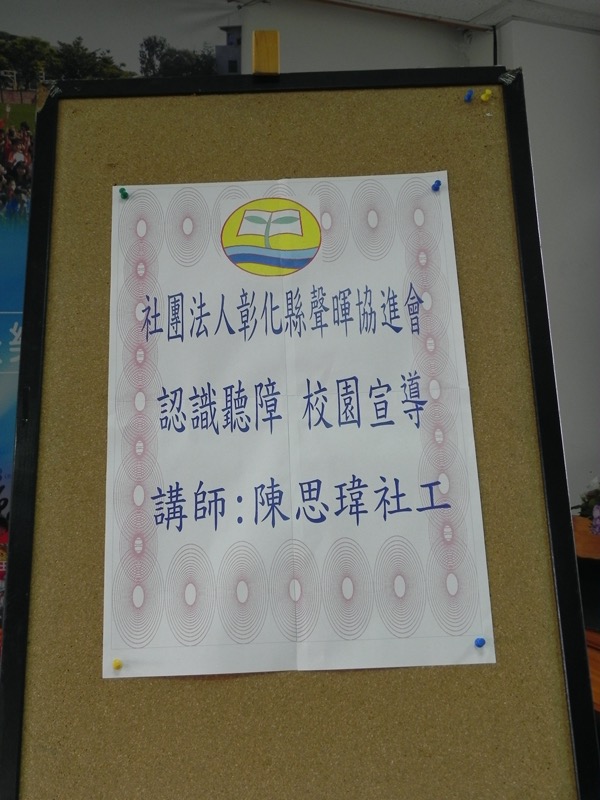 社團法人彰化縣聲暉協進會
認識聽障 校園宣導
講師:陳思瑋社工